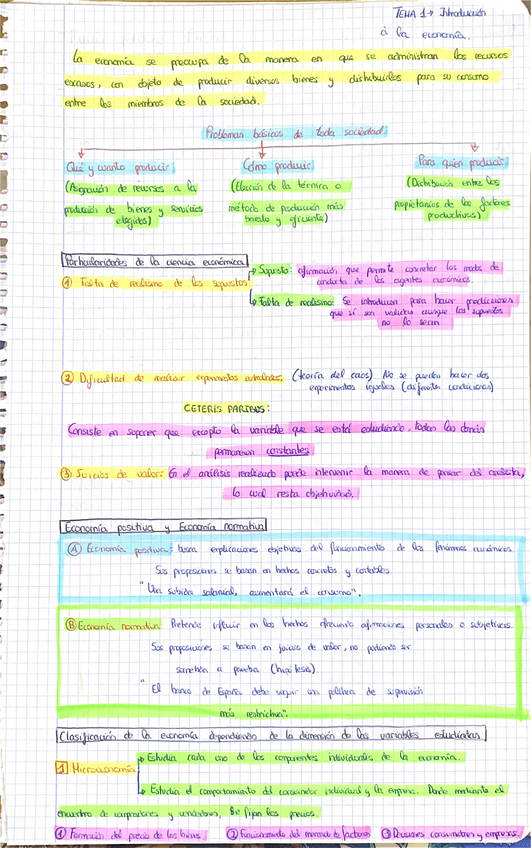 TEMA 1 → Introducción
a la economía.
La economía se preocupa de la manera en que se administran los recursos
escasos, con objeto de producir diversos bienes y distribuirlos para su consumo
entre los miembros de la sociedad.
Problemas básicos de toda sociedad:
Qué y cuanto producir: Cómo producir: Para quien producir:
(Asignación de recursos a la (Elección de la técnica o (Distribución entre los
producción de bienes y servicios método de producción más propietarios de los factores
elegidos) barato y eficiente) productivos)
Particularidades de la ciencia económica:
① Falta de realismo de los supuestos: → Supuesto: afirmación que permite concretar los modos de
conducta de los agentes económicos.
→ Falta de realismo: Se introducen para hacer predicciones
que sí son validas aunque los supuestos
no lo sean
② Dificultad de realizar experimentos controlados: (teoría del caos) No se pueden hacer dos
experimentos iguales (diferentes condiciones)
CETERIS PARIBUS:
Consiste en suponer que excepto la variable que se está estudiando, todas las demás
permanecen constantes
③ Juicios de valor: En el análisis realizado puede intervenir la manera de pensar del analista,
lo cual resta objetividad.
Economía positiva y Economía normativa
Ⓐ Economía positiva: busca explicaciones objetivas del funcionamiento de los fenómenos económicos.
Sus proposiciones se basan en hechos concretos y contables.
"Una subida salarial, aumentará el consumo".
Ⓑ Economía normativa: Pretende influir en los hechos ofreciendo afirmaciones personales o subjetivas.
Sus proposiciones se basan en juicios de valor, no pudiendo ser
sometida a prueba (hipótesis).
"El banco de España debe seguir una política de supervisión
más restrictiva".
Clasificación de la economía dependiendo de la dimensión de las variables estudiadas
1 Microeconomía → Estudia cada uno de los componentes individuales de la economía.
→ Estudia el comportamiento del consumidor individual y la empresa. Donde mediante el
encuentro de compradores y vendedores, se fijan los precios.
① Formación del precio de los bienes. ② Funcionamiento del mercado de factores ③ Decisiones consumidores y empresas.